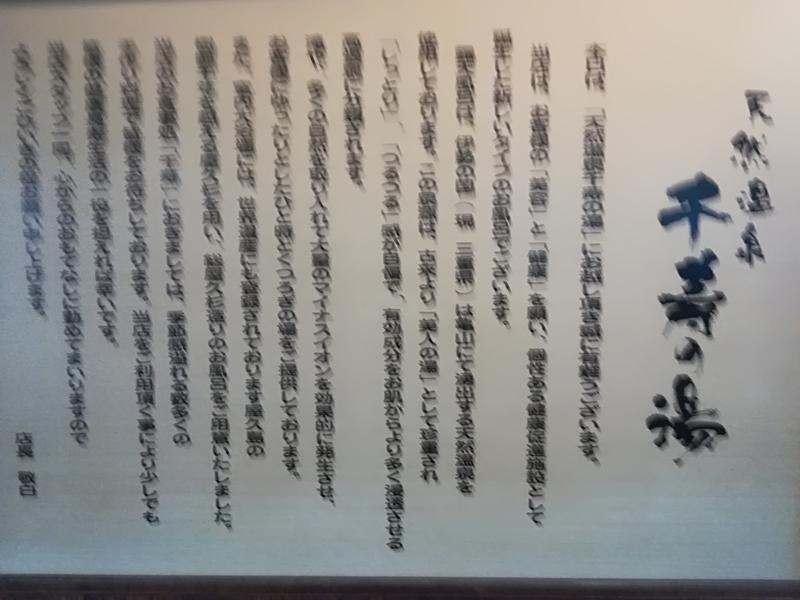 天然温泉
千寿の湯
本日は、「天然温泉千寿の湯」にお越し頂き誠に有難うございます。
当店は、お客様の「美容」と「健康」を願い、個性ある健康促進施設として
誕生した新しいタイプのお風呂でございます。
は、伊勢の国(現 三重県)は亀山にて湧出する天然温泉を
しております。この泉質は、古来より「美人の湯」として珍重され
「しっとり」、「つるつる」感が自慢で、有効成分をお肌からより多く浸透させる
されます。
、多くの自然を取り入れて大量のマイナスイオンを効果的に発生させ、
お客様にゆったりとしたひと時とくつろぎの場をご提供しております。
また、には、世界遺産にも登録されております屋久島の
屋久杉を用い、総屋久杉造りのお風呂をご用意いたしました。
「千寿」におきましては、季節感溢れる数多くの
をお待ちしております。当店をご利用頂く事により少しでも
皆様の健康の一役を担えれば幸いです。
当店スタッフ一同、心からのおもてなしに努めてまいりますので
お願い申し上げます。
店長 敬白